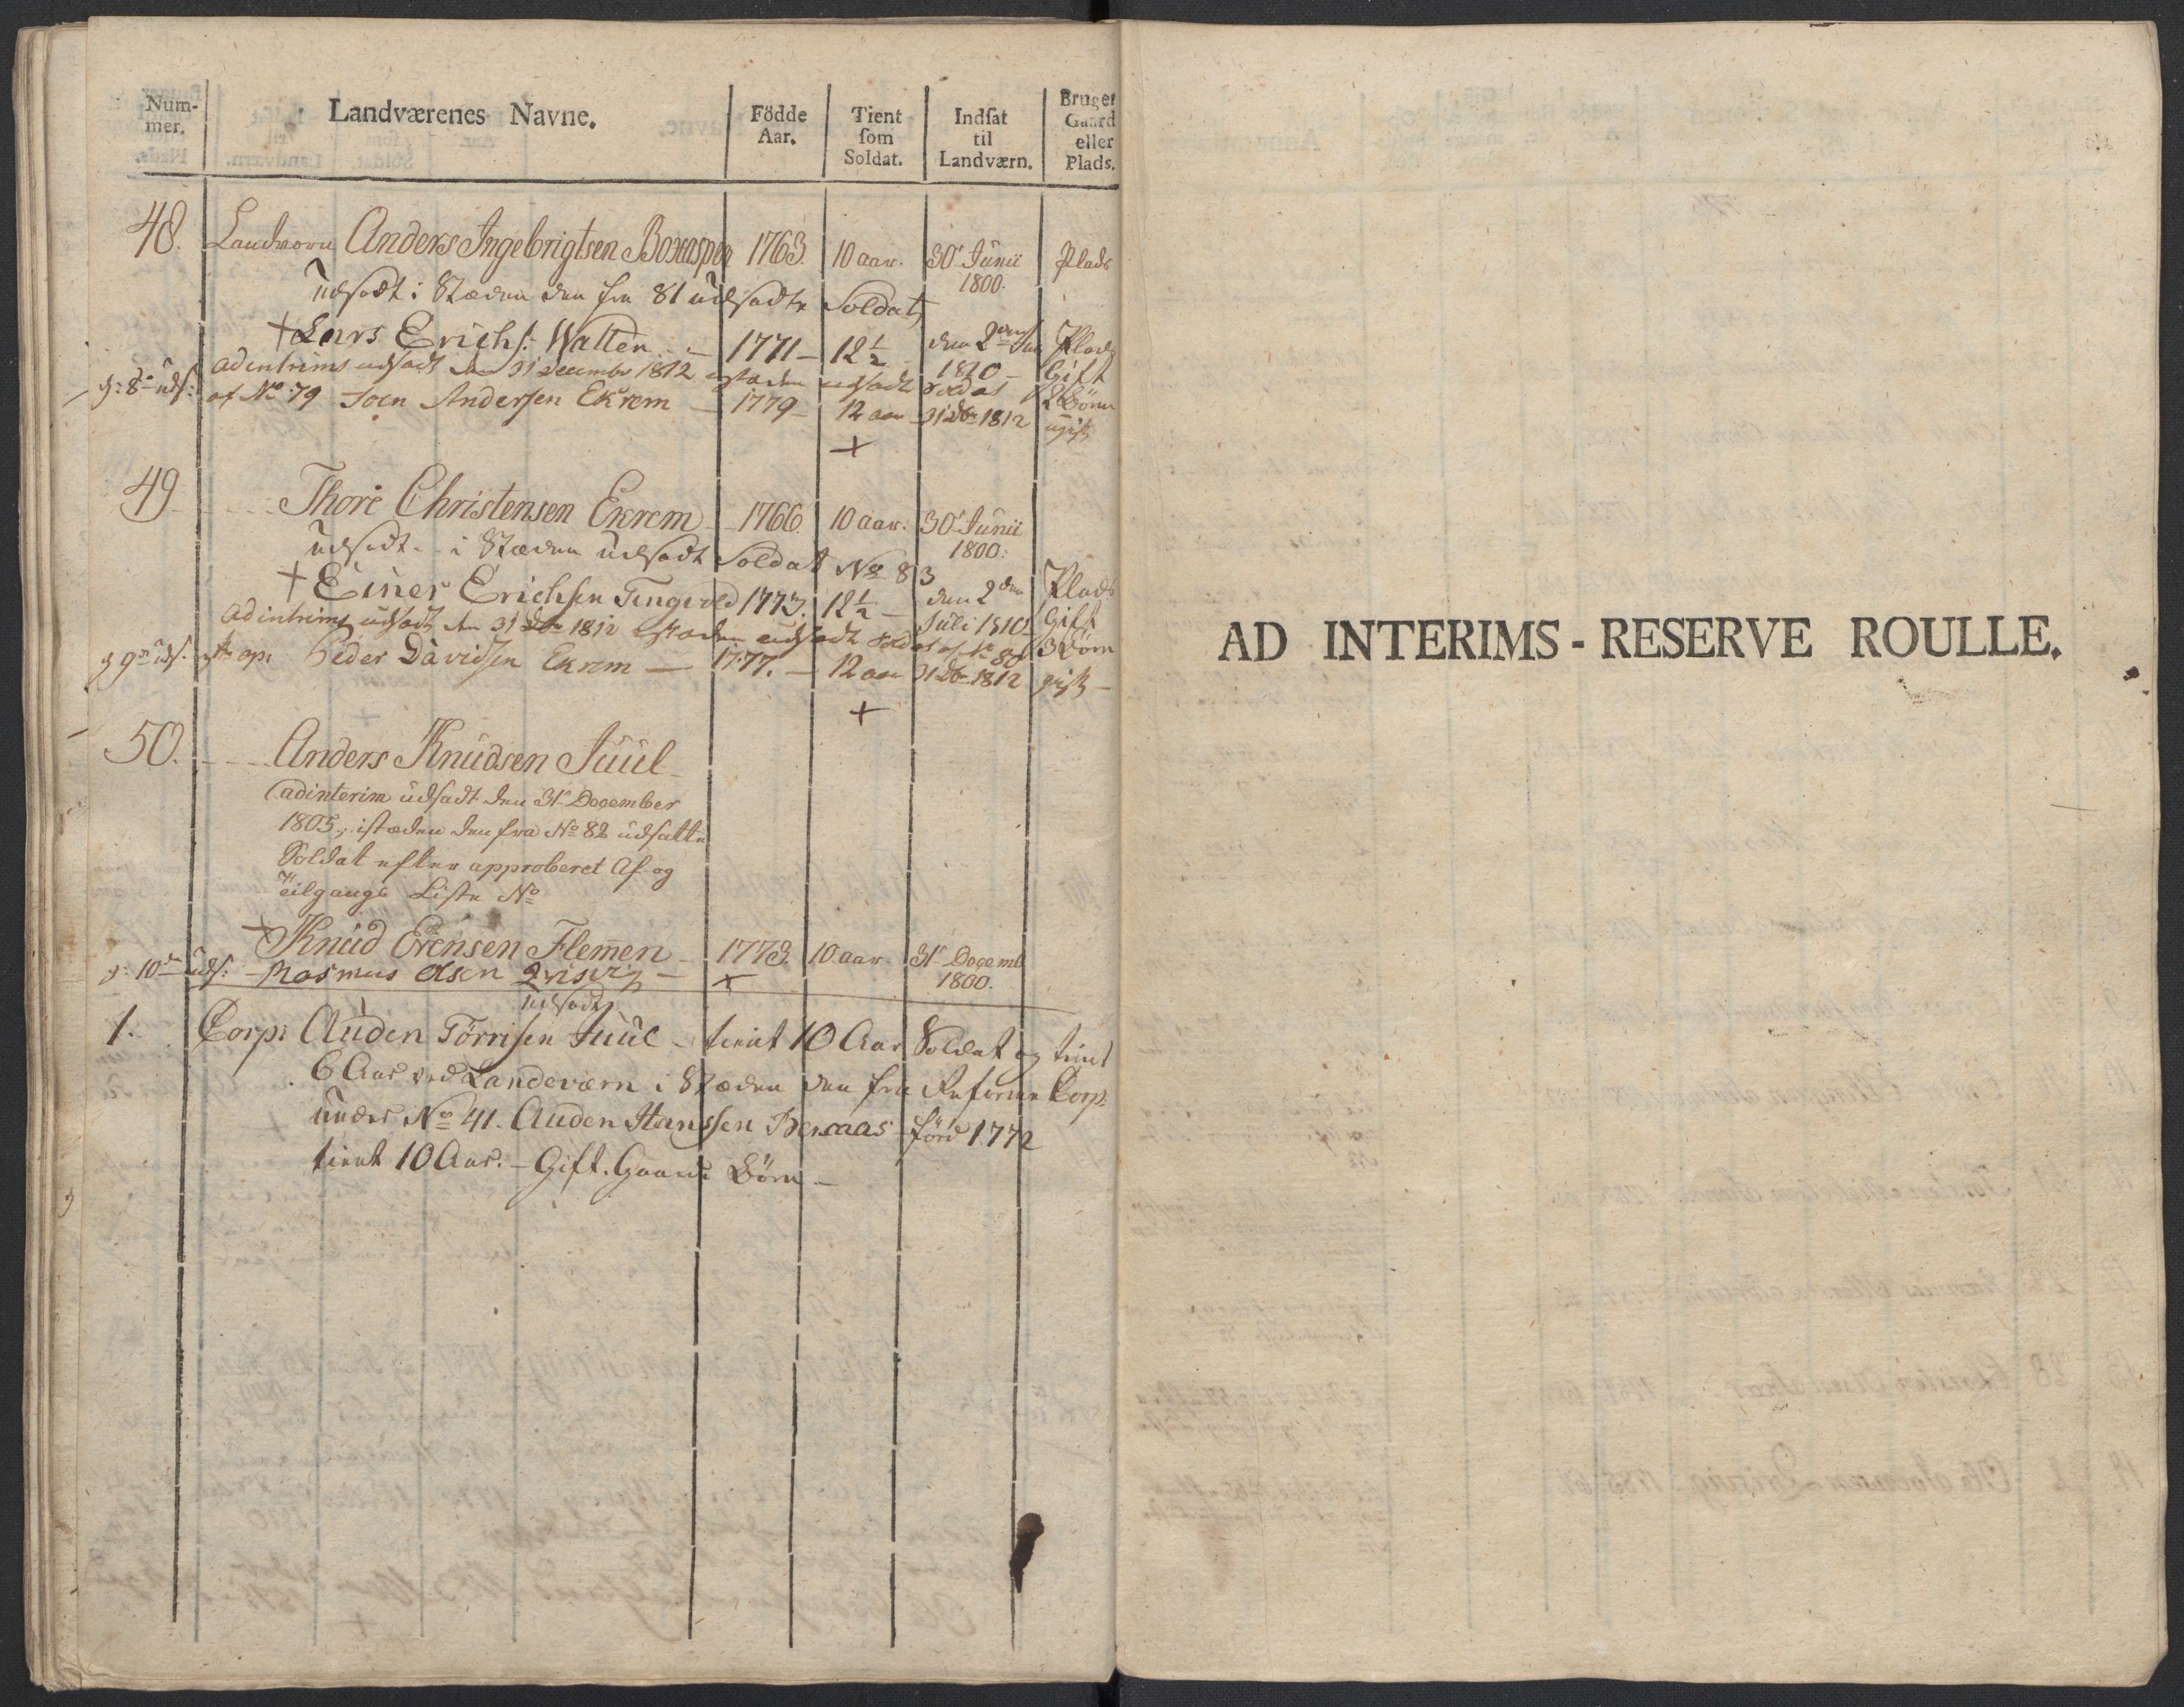 Num-
mer.
Landværenes Navne.
Födde
Aar.
Tient
som
Soldat.
Indsat
til
Landværn.
Bruger
Gaard
eller
Plads.
48. Landværn Anders Ingebrigtsen 1763. 10 aar. 30t Junii 1800. Plads
Udsadt i Stæden den fra 81 udsadte Soldat
+ Lars Erichs: Walten 1771 - 12½ den 2den 1810 - Plads Gift 2 Børn
adintrims udsadt den 31 December 1812 istæden udsadt Soldat
af No 79 Joen Andersen Ekrem - 1779 - 12 aar 31 Dbr 1812 ugift
+
49 Thore Christensen Ekrem 1766. 10 aar. 30t Junii 1800.
Udsadt i Stæden udsadt Soldat No 83
+ Einer Erichsen Tingvold 1773. 12½ - den 2den Juli 1810 Plads Gift 3 Børn
adintrims udsadt den 31 Dbr 1812 istæden udsadt Soldat af No 80
Peder Davidsen Ekrem - 1777. - 12 aar 31 Dbr 1812 gift -
+
50. Anders Knudsen Juul
adinterim udsadt den 31t December
1805, istæden den fra No 82 udsatte
Soldat efter approberet Af og
Tilgangs Liste No
+ Knud Evensen Flemen - 1773. 10 aar. 31t Decemb 1800.
g: 10de uds: Rasmus Olsen +
udsadt
1. Corp: Auden Törrisen Juul - tient 10 Aar Soldat og tient
6 Aar ved Landeværn i Stæden den fra Reserve Corp.
under No 41. Auden Hanssen förd 1772
tient 10 Aar. - Gift. Gaard Börn -
AD INTERIMS - RESERVE ROULLE.